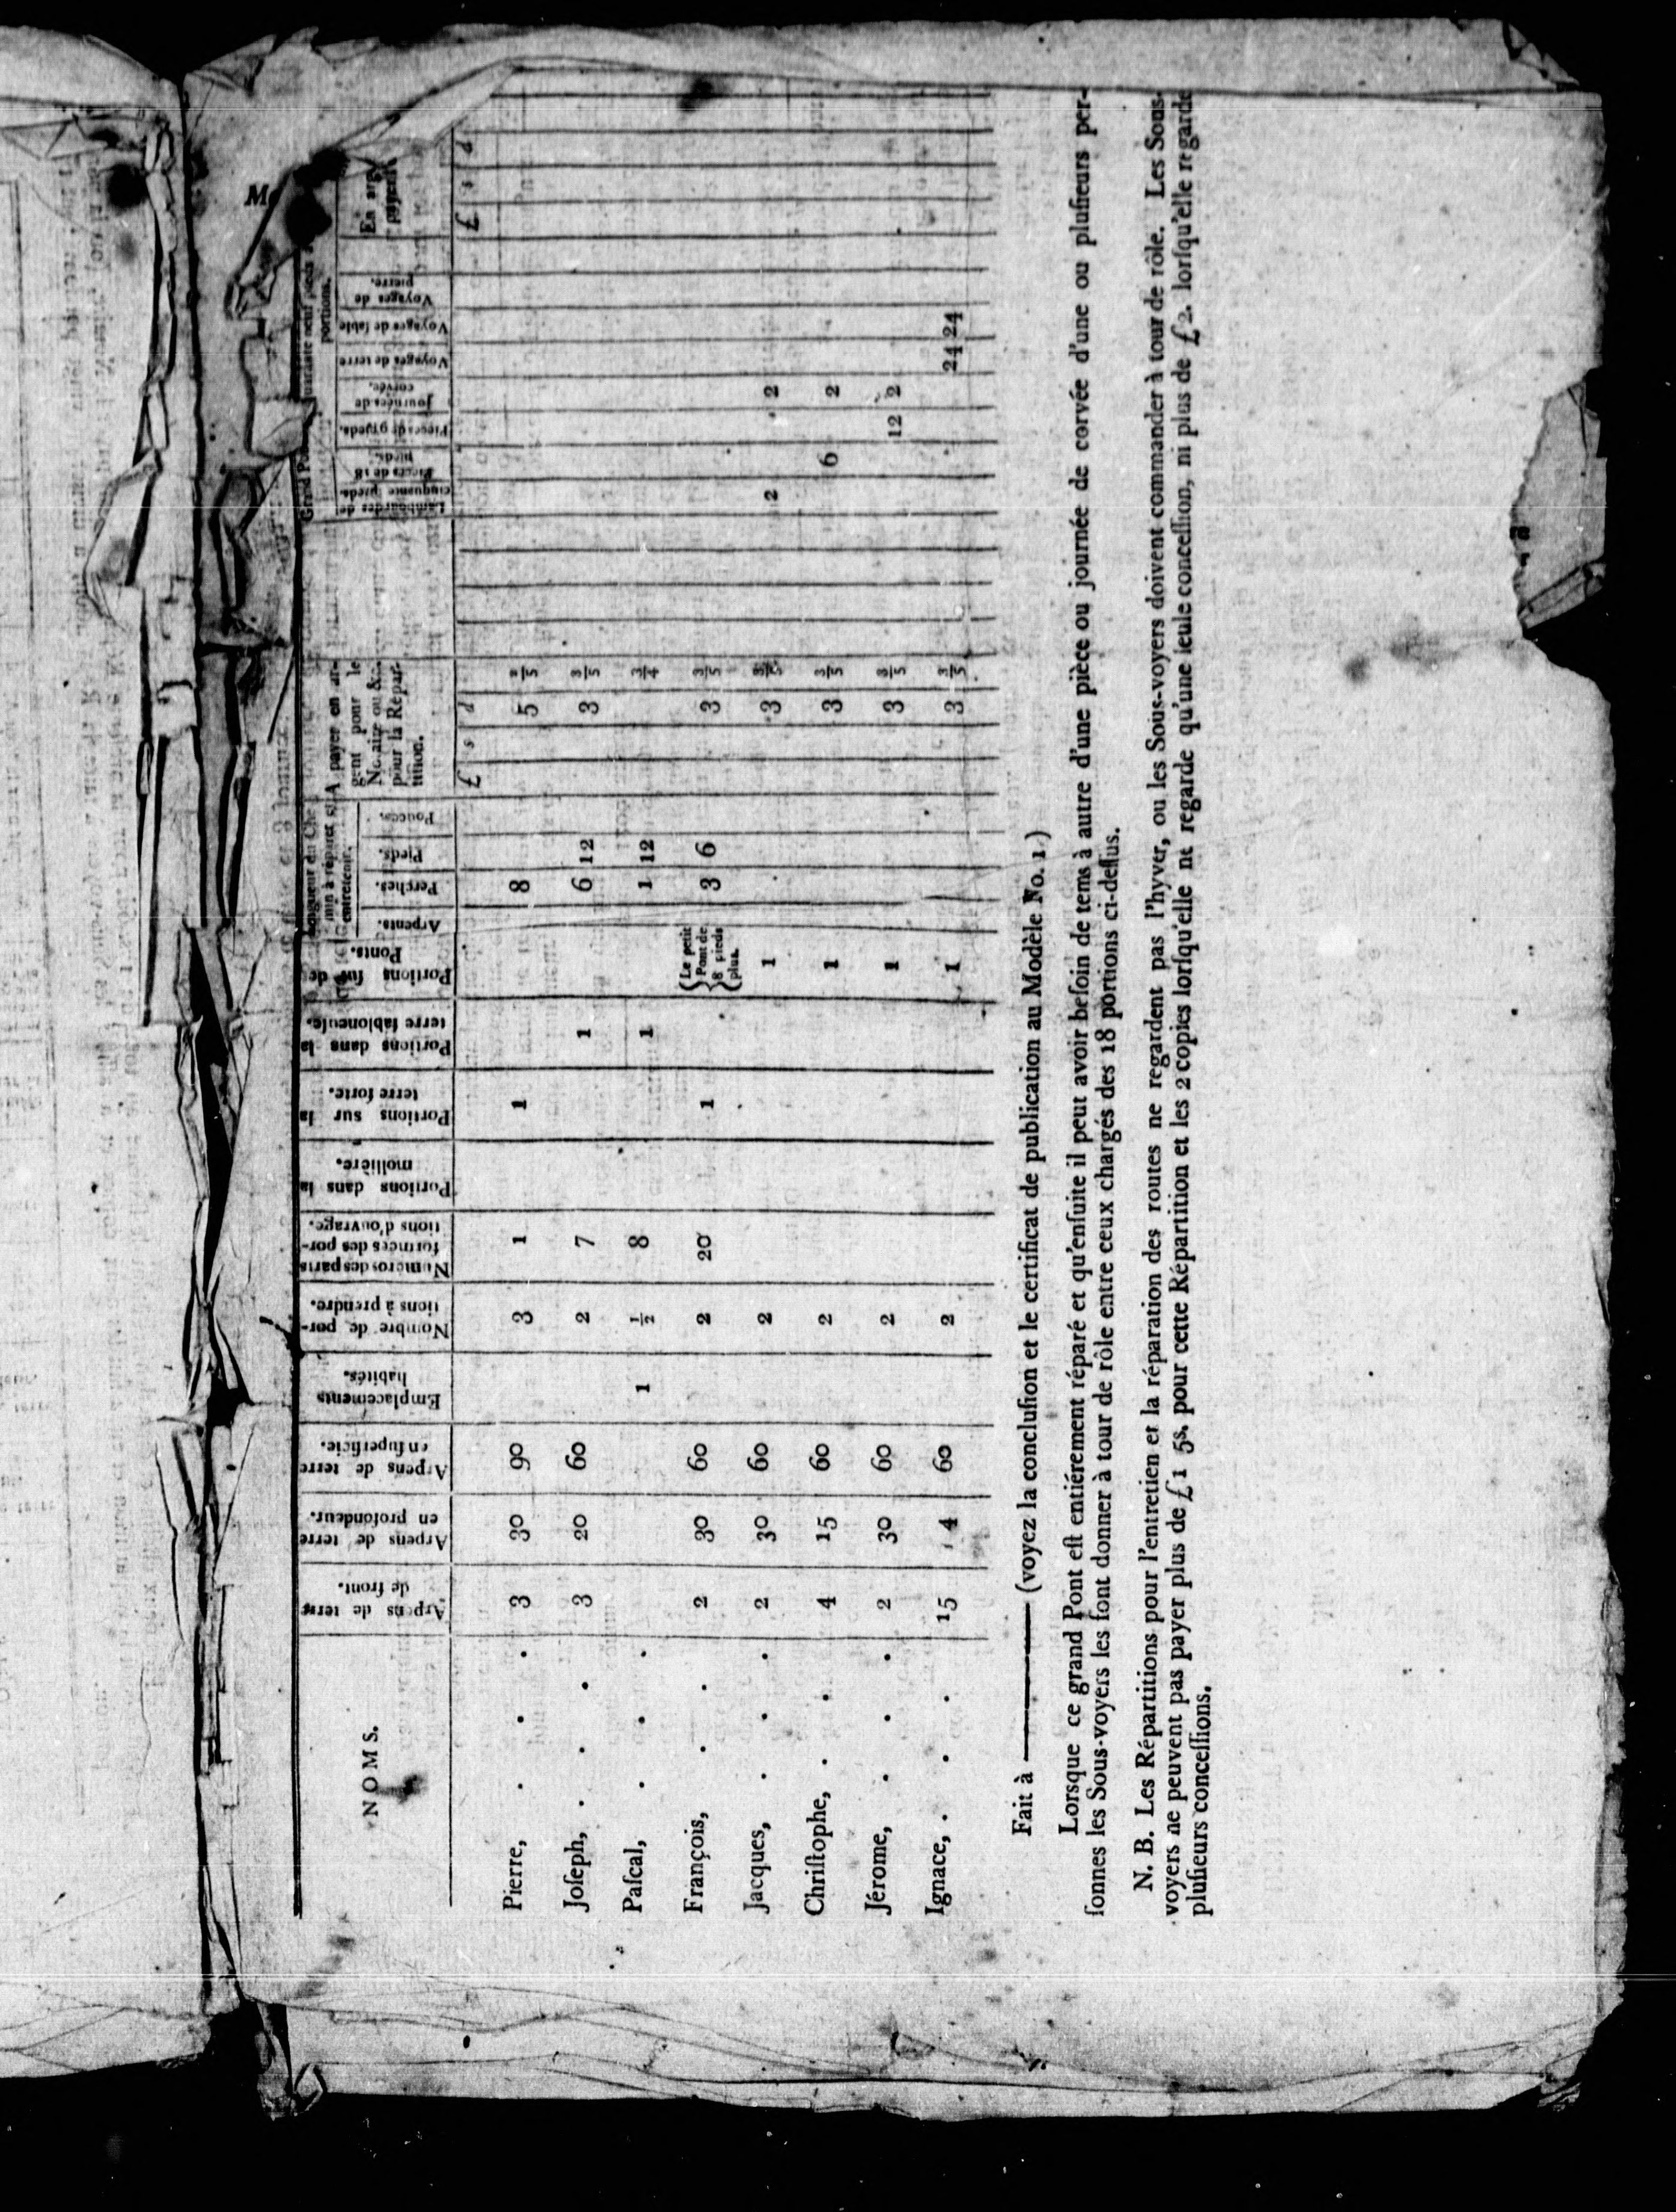 NOMS.
Arpens de terre de front.
Arpens de terre en profondeur.
Arpens de terre en superficie.
Emplacements habités.
Nombre de portions à prendre.
Numéros des parts formées des portions d'ouvrage.
Portions dans la molliére.
Portions sur la terre forte.
Portions dans la terre sabloneuse.
Portions sur de Ponts.
min à réparer
entretenir.
Arpents.
Perches.
Pieds.
Pouces.
A payer en argent pour le Notaire ou &c. pour la Répartition.
£ s d
portions.
Lambourdes de cinquante pieds.
Pieces de 18 pieds.
Pieces de 9 pieds.
Journées de corvée.
Voyages de terre
Voyages de sable
Voyages de pierre.
£ s d
Pierre, . . . 3 30 90 3 1 1 8 5 2/5
Joſeph, . . . 3 20 60 2 7 1 6 12 3 3/5
Paſcal, . . . 1 1/2 8 1 1 12 3/4
François, . . . 2 30 60 2 20 1 {Le petit Pont de 8 pieds plus. 3 6 3 3/5
Jacques, . . . 2 30 60 2 1 3 3/5 2 2
Chriſtophe, . . 4 15 60 2 1 3 3/5 6 2
Jérome, . . . 2 30 60 2 1 3 3/5 12 2
Ignace, . . . 15 4 60 2 1 3 3/5 24 24
Fait à ——— (voyez la concluſion et le certificat de publication au Modèle No. 1.)
Lorsque ce grand Pont eſt entiérement réparé et qu'enſuite il peut avoir beſoin de tems à autre d'une pièce ou journée de corvée d'une ou pluſieurs per-
ſonnes les Sous-voyers les font donner à tour de rôle entre ceux chargés des 18 portions ci-deſſus.
N. B. Les Répartitions pour l'entretien et la réparation des routes ne regardent pas l'hyver, ou les Sous-voyers doivent commander à tour de rôle. Les Sous-
voyers ne peuvent pas payer plus de £1 5s. pour cette Répartition et les 2 copies lorſqu'elle ne regarde qu'une ſeule conceſſion, ni plus de £2. lorſqu'elle regarde
pluſieurs conceſſions.